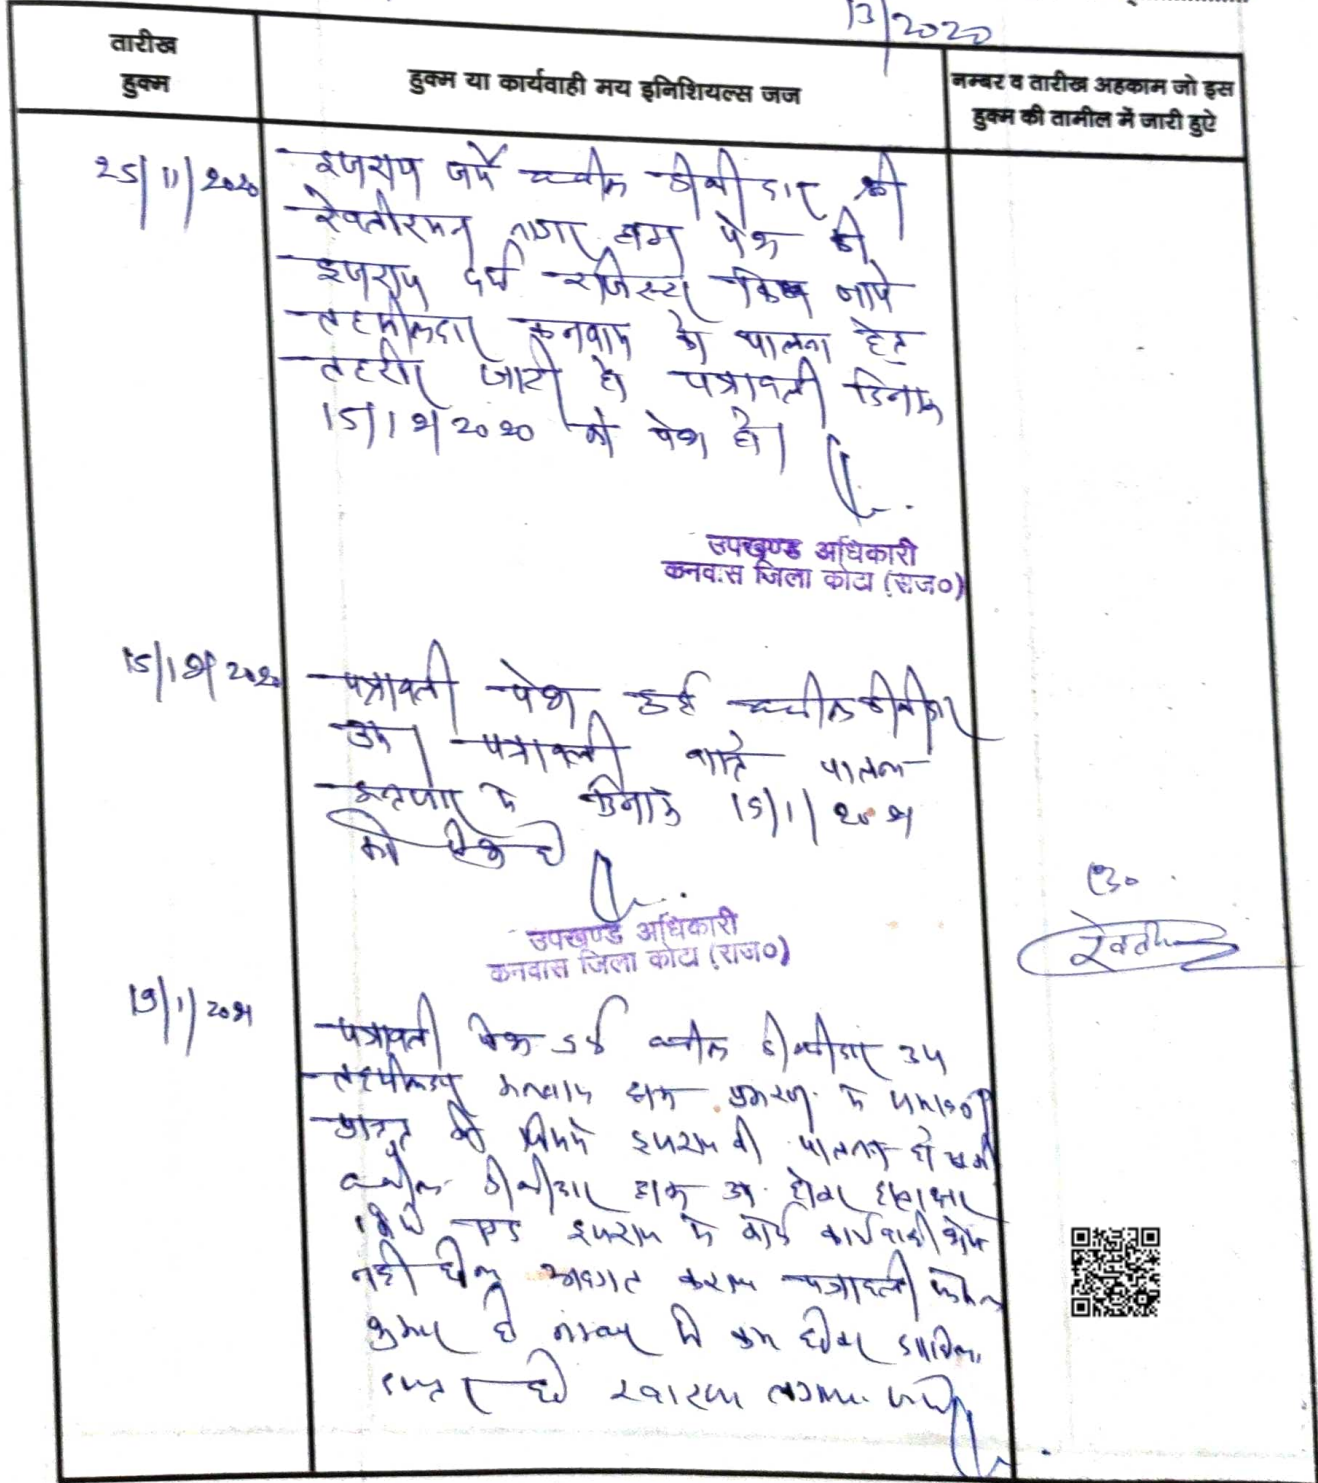 13/2020
तारीख
हुक्म
हुक्म या कार्यवाही मय इनिशियल्स जज
नम्बर व तारीख अहकाम जो इस
हुक्म की तामील में जारी हुऐ
25/11/2020
इजराय जर्ये वकील डीक्रीदार श्री
रेवतीरमन नागर द्वारा पेश की
इजराय दर्ज रजिस्टर किया जावे
तहसीलदार कनवास को पालना हेतु
तहरीर जारी हो पत्रावली दिनांक
15/12/2020 को पेश हो।
उपखण्ड अधिकारी
कनवास जिला कोटा (राज०)
15/12/2020
पत्रावली पेश हुई वकील डीक्रीदार
उप। पत्रावली वास्ते पालना
इन्तजार में दिनांक 15/1/2021
को पेश हो
उपखण्ड अधिकारी
कनवास जिला कोटा (राज०)
19/1/2021
पत्रावली पेश हुई वकील डीक्रीदार उप
तहसीलदार कनवास द्वारा प्रकरण में
प्रस्तुत की जिसमें इजराय की पालना हो
वकील डीक्रीदार द्वारा उप. होकर हस्ताक्षर
किये इजराय में कोई कार्यवाही शेष
नहीं होना अवगत कराया पत्रावली फैसल
शुमार हो नम्बर से कम होकर दाखिल
दफ्तर हो
रेवती